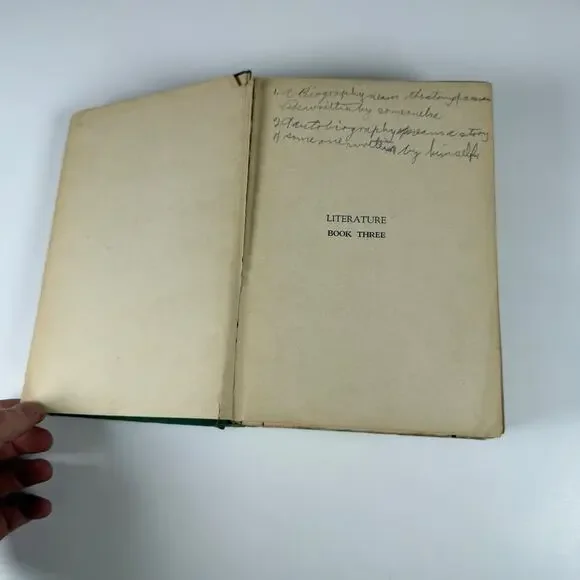 1. A Biography means the story of a man
life written by someone else
2. A autobiography means a story
of some one written by himself
LITERATURE
BOOK THREE